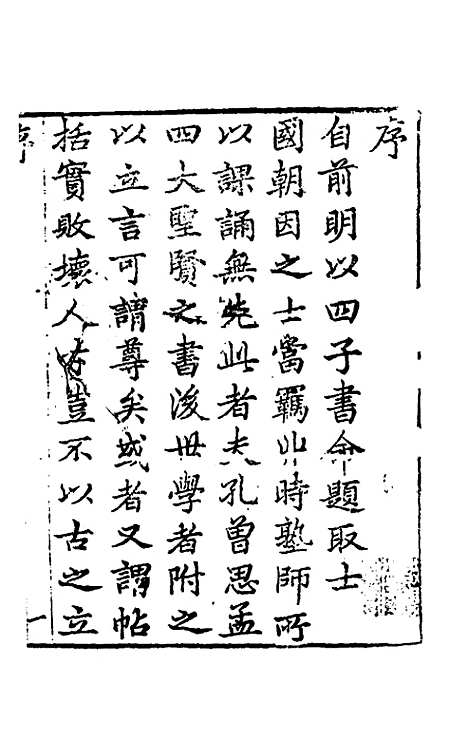 序
自前明以四子書命題取士
國朝因之士當羈丱時塾師所
以課誦無先此者夫孔曾思孟
四大聖賢之書後世學者附之
以立言可謂尊矣或者又謂帖
括實敗壞人才豈不以古之立
序
一